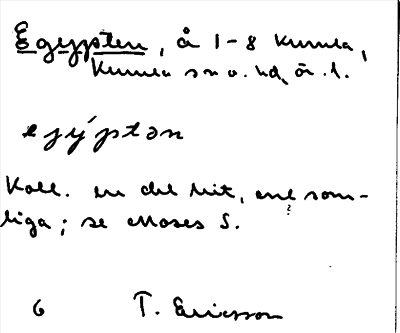 Egypten, å 1-8 Kumla,
Kumla sn o. hd, Ör. l.
ejýptən
Kall. en del hit, enl som-
liga; se Moses S.
?
6 T. Ericsson